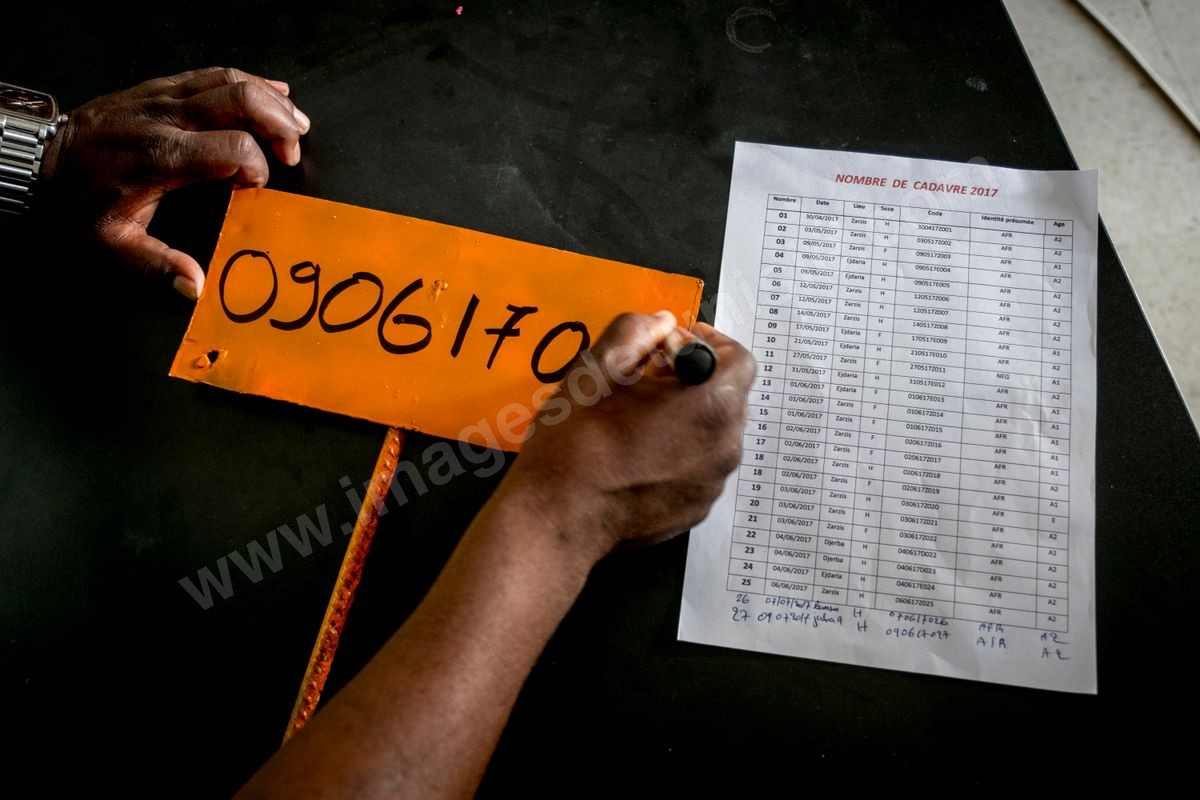 090617 0
NOMBRE DE CADAVRE 2017
Nombre Date Lieu Sexe Code Identité présumée Age
01 30/04/2017 Zarzis H 300417Z001 AFR A2
02 03/05/2017 Zarzis H 030517Z002 AFR A2
03 09/05/2017 Zarzis F 090517Z003 AFR A1
04 09/05/2017 Ejdaria H 090517E004 AFR A2
05 09/05/2017 Ejdaria H 090517E005 AFR A2
06 12/05/2017 Zarzis H 120517Z006 AFR A2
07 12/05/2017 Zarzis H 120517Z07 AFR
08 14/05/2017 Zarzis H 140517Z008 AFR A1
09 17/05/2017 Ejdaria F 170517E009 AFR
10 21/05/2017 Ejdaria H 210517E010 AFR
11 27/05/2017 Zarzis F 270517Z011 NEG
12 31/05/2017 Ejdaria H 310517E012 AFR
13 01/06/2017 Ejdaria F 010617E013 AFR
14 01/06/2017 Zarzis F 010617Z014 AFR
15 01/06/2017 Zarzis F 010617Z015 AFR
16 02/06/2017 Zarzis F 020617Z016 AFR
17 02/06/2017 Zarzis 020617Z017 AFR
18 02/06/2017 Zarzis H 020617Z018 AFR
18 02/06/2017 Zarzis F 020617Z019 AFR
19 03/06/2017 Zarzis H 030617Z020 AFR E
20 03/06/2017 Zarzis H 030617Z021 AFR A1
21 03/06/2017 Zarzis F 030617Z022 AFR A2
22 04/06/2017 Djerba H 040617D022 AFR A2
23 04/06/2017 Djerba H 040617D023 AFR A2
24 04/06/2017 Ejdaria H 040617E024 AFR A2
25 06/06/2017 Zarzis H 060617Z025 AFR A2
26 07/07/2017 H 070617026 AFR A2
27 09072017 H 090617027 AFR A2
www.imagesde